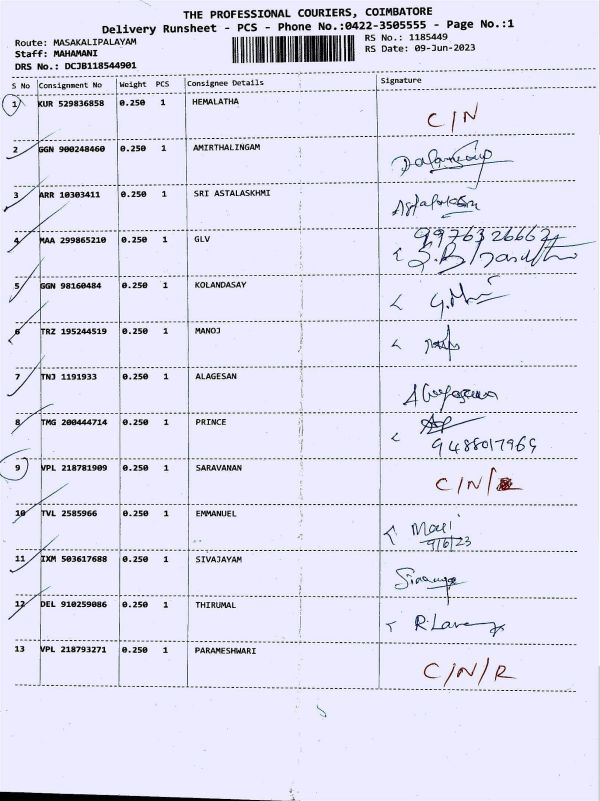 THE PROFESSIONAL COURIERS, COIMBATORE
Delivery Runsheet - PCS - Phone No.:0422-3505555 - Page No.:1
Route: MASAKALIPALAYAM
Staff: MAHAMANI
DRS No.: DCJB118544901
RS No.: 1185449
RS Date: 09-Jun-2023
S No Consignment No Weight PCS Consignee Details Signature
1 KUR 529836858 0.250 1 HEMALATHA C/N
2 GGN 900248460 0.250 1 AMIRTHALINGAM
3 ARR 10303411 0.250 1 SRI ASTALASKHMI
4 MAA 299865210 0.250 1 GLV 9976326662
5 GGN 98160484 0.250 1 KOLANDASAY
6 TRZ 195244519 0.250 1 MANOJ
7 TNJ 1191933 0.250 1 ALAGESAN
8 TMG 200444714 0.250 1 PRINCE
9488017969
9 VPL 218781909 0.250 1 SARAVANAN C/N/R
10 TVL 2585966 0.250 1 EMMANUEL
9/6/23
11 IXM 503617688 0.250 1 SIVAJAYAM
12 DEL 910259086 0.250 1 THIRUMAL
13 VPL 218793271 0.250 1 PARAMESHWARI C/N/R